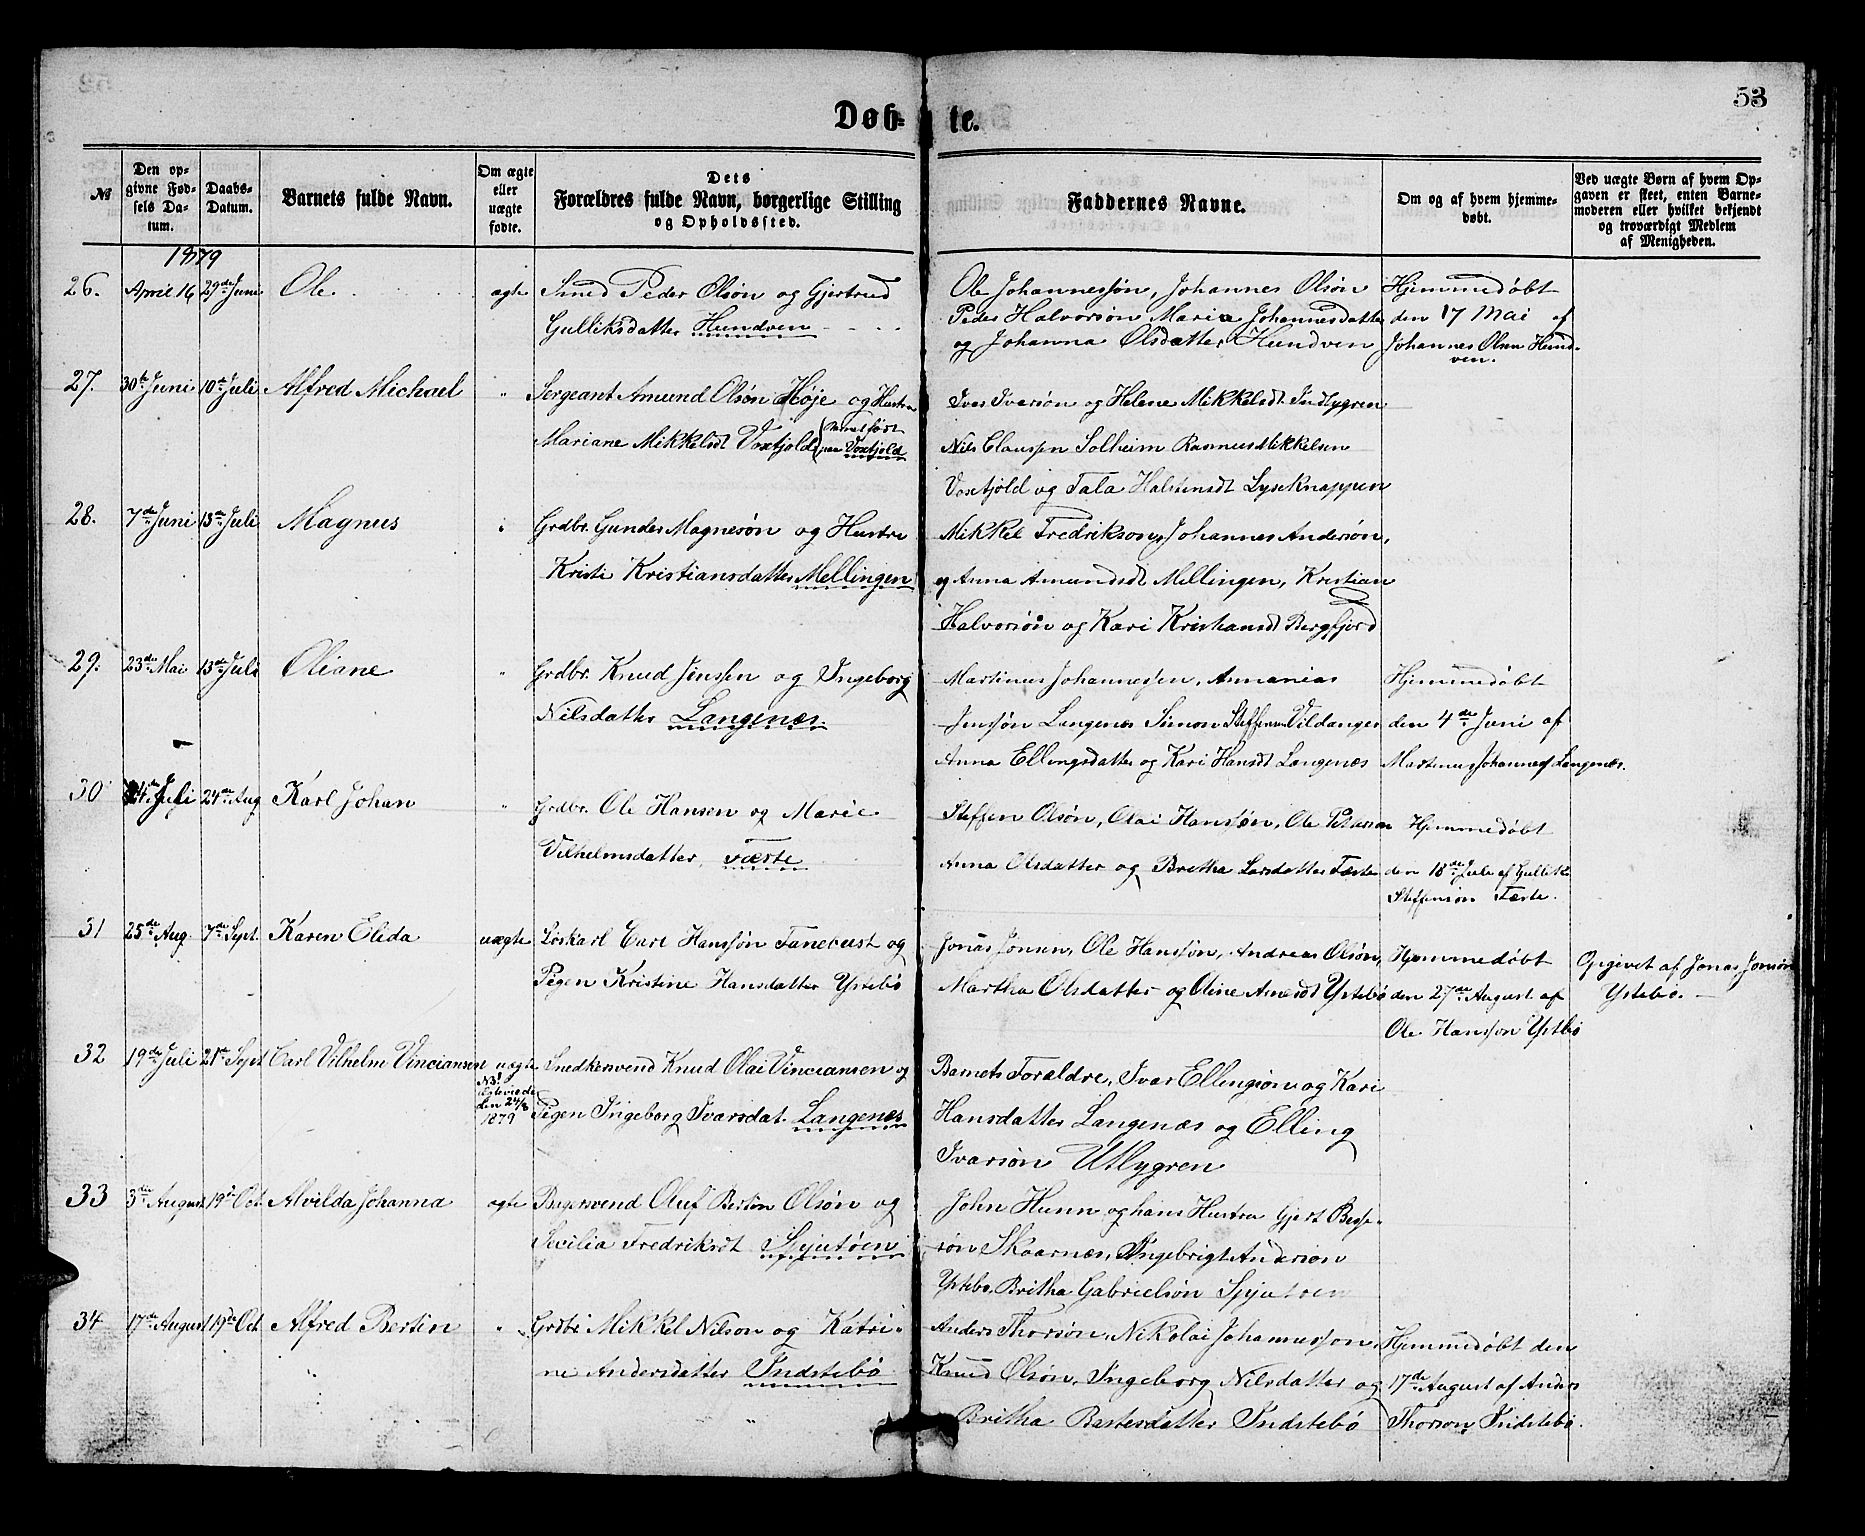 53
Døb- te.
№
Den op-
givne Fød-
sels Da-
tum.
Daabs-
Datum.
Barnets fulde Navn.
Om ægte
eller
uægte
fødte.
Dets
Forældres fulde Navn, borgerlige Stilling
og Opholdssted.
Faddernes Navne.
Om og af hvem hjemme-
døbt.
Ved uægte Børn af hvem Op-
gaven er skeet, enten Barne-
moderen eller hvilket bekjendt
og troværdigt Medlem
af Menigheden.
1879
26. April 16 29de Juni Ole. ægte Smed Peder Olsøn og Gjertrud
Gulliksdatter Hundven
Ole Johannessøn, Johannes Olsøn
Peder Halvorsøn Marie Johannesdatter
og Johanna Olsdatter Hundven
Hjemmedøbt
den 17 Mai af
Johannes Olsen Hund-
ven.
27. 30te Juni 10de Juli Alfred Michael " Sergeant Amund Olsøn Høje og Hustru
Mariane Mikkelsdt Voxtjold (Barnet født
paa Voxtjold
Iver Iversøn og Helene Mikkelsdt Indlygren
Nils Claussen Solheim Rasmus Mikkelsen
Voxtjold og Tala Halstensdt Lyseknappen
28. 7de Juni 13de Juli Magnus " Grdbr. Gunder Magnesøn og Hustru
Kristi Kristiansdatter Mellingen
Mikkel Fredrikson, Johannes Andersøn,
og Anna Amundsdt Mellingen, Kristian
Halvorsøn og Kari Kristiansdt Bergfjord
29. 23de Mai 13de Juli Oliane " Grdbr. Knud Jenssen og Ingeborg
Nilsdatter Langenæs
Martinus Johannessen, Annanias
Jenssøn Langenes Simon Steffensen Vildanger
Anna Ellingsdatter og Kari Hansdt Langenæs
Hjemmedøbt
den 4de Juni af
Martinus Johannes Langenæs.
30 14de Juli 24de Aug Karl Johan " Grdbr. Ole Hansen og Marie
Vilhelmsdatter, Færste
Steffen Olsøn, Olai Hanssøn, Ole Peterson
Anna Olsdatter og Britha Larsdatter Færste
Hjemmedøbt
den 18de Juli af Gullik
Steffensøn Færste.
31 25de Aug. 7de Sept. Karen Elida uægte Løskarl Carl Hanssøn Tanebust og
Pigen Kristine Hansdatter Ystebø
Jonas Jonsen, Ole Hanssøn, Andreas Olsøn,
Martha Olsdatter og Oline Arnesdt Ystebø
Hjemmedøbt
den 27de August af
Ole Hansson Ystbø
Opgivet af Jonas Jonsøn
Ystebø.
32 19de Juli 21de Sept Carl Vilhelm Vinciansen uægte
NB!
Egteviede
den 24/8
1879
Snedkersvend Knud Olai Vinciansen og
Pigen Ingeborg Ivarsdat. Langenæs
Barnets Forældre, Ivar Ellingsøn og Kari
Hansdatter Langenæs og Elling
Ivarsøn Utlygren
33 3de August 19de Oct. Alvilda Johanna ægte Bagersvend Oluf Bertin Olsøn og
Secilia Fredriksdt Spjutøen
John Hunn og hans Hustru Gjert Besse-
søn Skaarnæs, Ingebrigt Andersøn
Ystebø Britha Gabrielsøn Spjutøen
34 17de August 19de Oct. Alfred Bertin " Grdbr Mikkel Nilson og Katri-
ne Andersdatter Indstebø
Anders Thorsøn, Nikolai Johannesson,
Knud Olsøn, Ingeborg Nilsdatter og
Britha Bastesdatter Indstebø
Hjemmedøbt den
17de August af Anders
Thorson Indstebø.